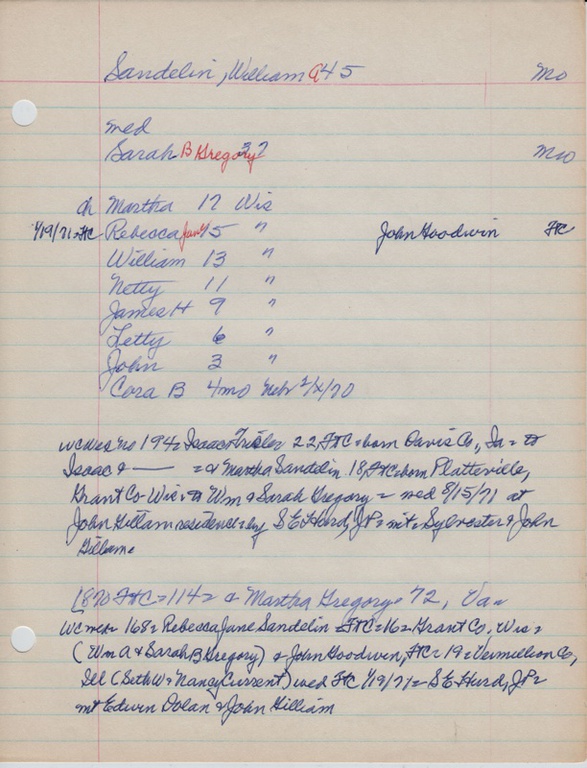 Sandelin, William A 45 Mo
med
Sarah B Gregory 37 Mo
ch Martha 17 Wis
1/19/71 = FtC Rebecca Jane 15 " John Goodwin FtC
William 13 "
Netty 11 "
James H 9 "
Letty 6 "
John 3 "
Cora B 4mo Nebr 2/x/70
WCWed No 194 = Isaac 22, FtC = born Davis Co, Ia = to
Isaac & — = & Martha Sandelin 18, FtC = born Platteville,
Grant Co Wis = to Wm & Sarah Gregory = wed 8/15/71 at
John Gillam residence = by S E Hurd, JP = wit = Sylvester & John
Gillam =
1870 FtC = 114 = & Martha Gregory = 72, Va =
WC 168 = Rebecca Jane Sandelin = FtC = 16 = Grant Co, Wis =
(Wm A & Sarah B Gregory) & John Goodwin, FtC = 19 = Vermillion Co,
Ill (Seth W & Nancy Current) wed FtC 1/19/71 = S E Hurd, JP =
wit Edwin Dolan & John Gilliam